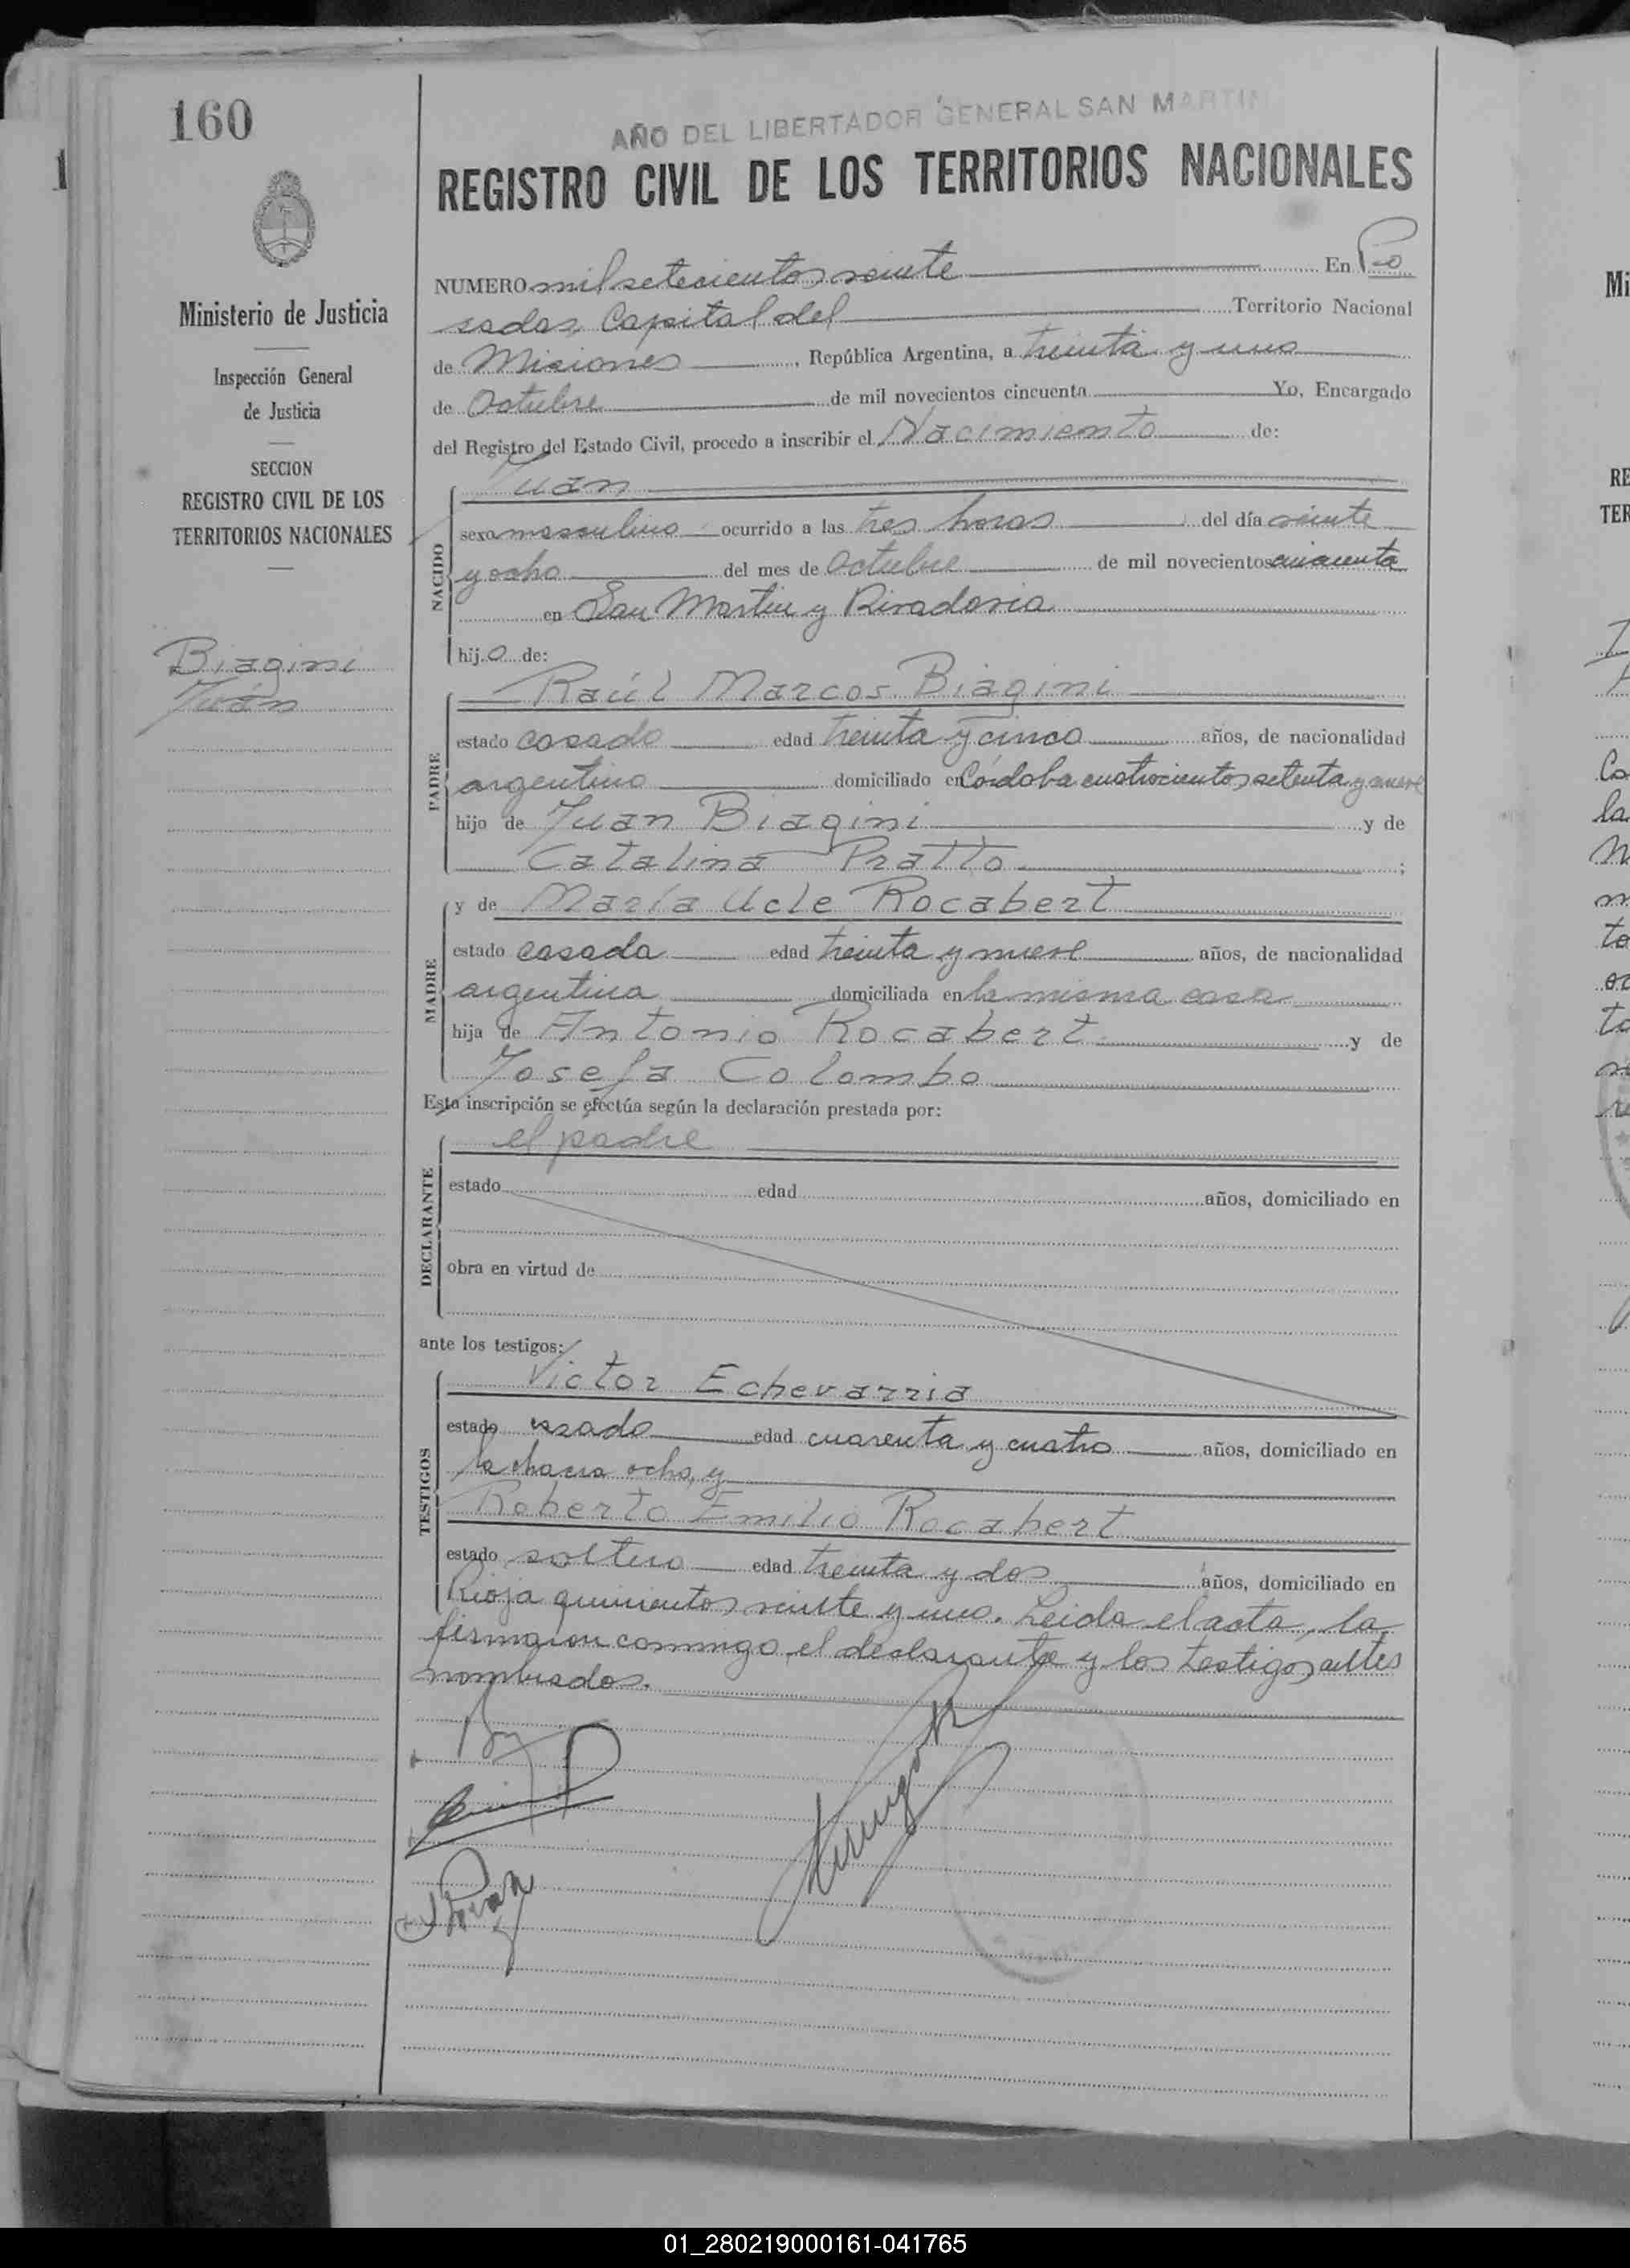 160
AÑO DEL LIBERTADOR GENERAL SAN MARTIN
REGISTRO CIVIL DE LOS TERRITORIOS NACIONALES
Ministerio de Justicia
Inspección General
de Justicia
SECCION
REGISTRO CIVIL DE LOS
TERRITORIOS NACIONALES
Biagini
Juan
NUMERO mil setecientos veinte En Po
sadas, Capital del Territorio Nacional
de Misiones, República Argentina, a treinta y uno
de Octubre de mil novecientos cincuenta Yo, Encargado
del Registro del Estado Civil, procedo a inscribir el Nacimiento de:
NACIDO
Juan
sexo masculino ocurrido a las tres horas del día veinte
y ocho del mes de Octubre de mil novecientos cincuenta
en San Martin y Rivadavia
hij o de:
PADRE
Raúl Marcos Biagini
estado casado edad treinta y cinco años, de nacionalidad
argentino domiciliado en Córdoba cuatrocientos setenta y nueve
hijo de Juan Biagini y de
Catalina Pratto;
MADRE
y de María Ucle Rocabert
estado casada edad treinta y nueve años, de nacionalidad
argentina domiciliada en la misma casa
hija de Antonio Rocabert y de
Josefa Colombo
Esta inscripción se efectúa según la declaración prestada por:
DECLARANTE
el padre
estado edad años, domiciliado en
obra en virtud de
ante los testigos:
TESTIGOS
Victor Echevarria
estado casado edad cuarenta y cuatro años, domiciliado en
la chacra ocho, y
Roberto Emilio Rocabert
estado soltero edad treinta y dos años, domiciliado en
Rioja quinientos veinte y uno. Leida el acta, la
firmaron conmigo, el declarante y los testigos antes
nombrados.
01_280219000161-041765